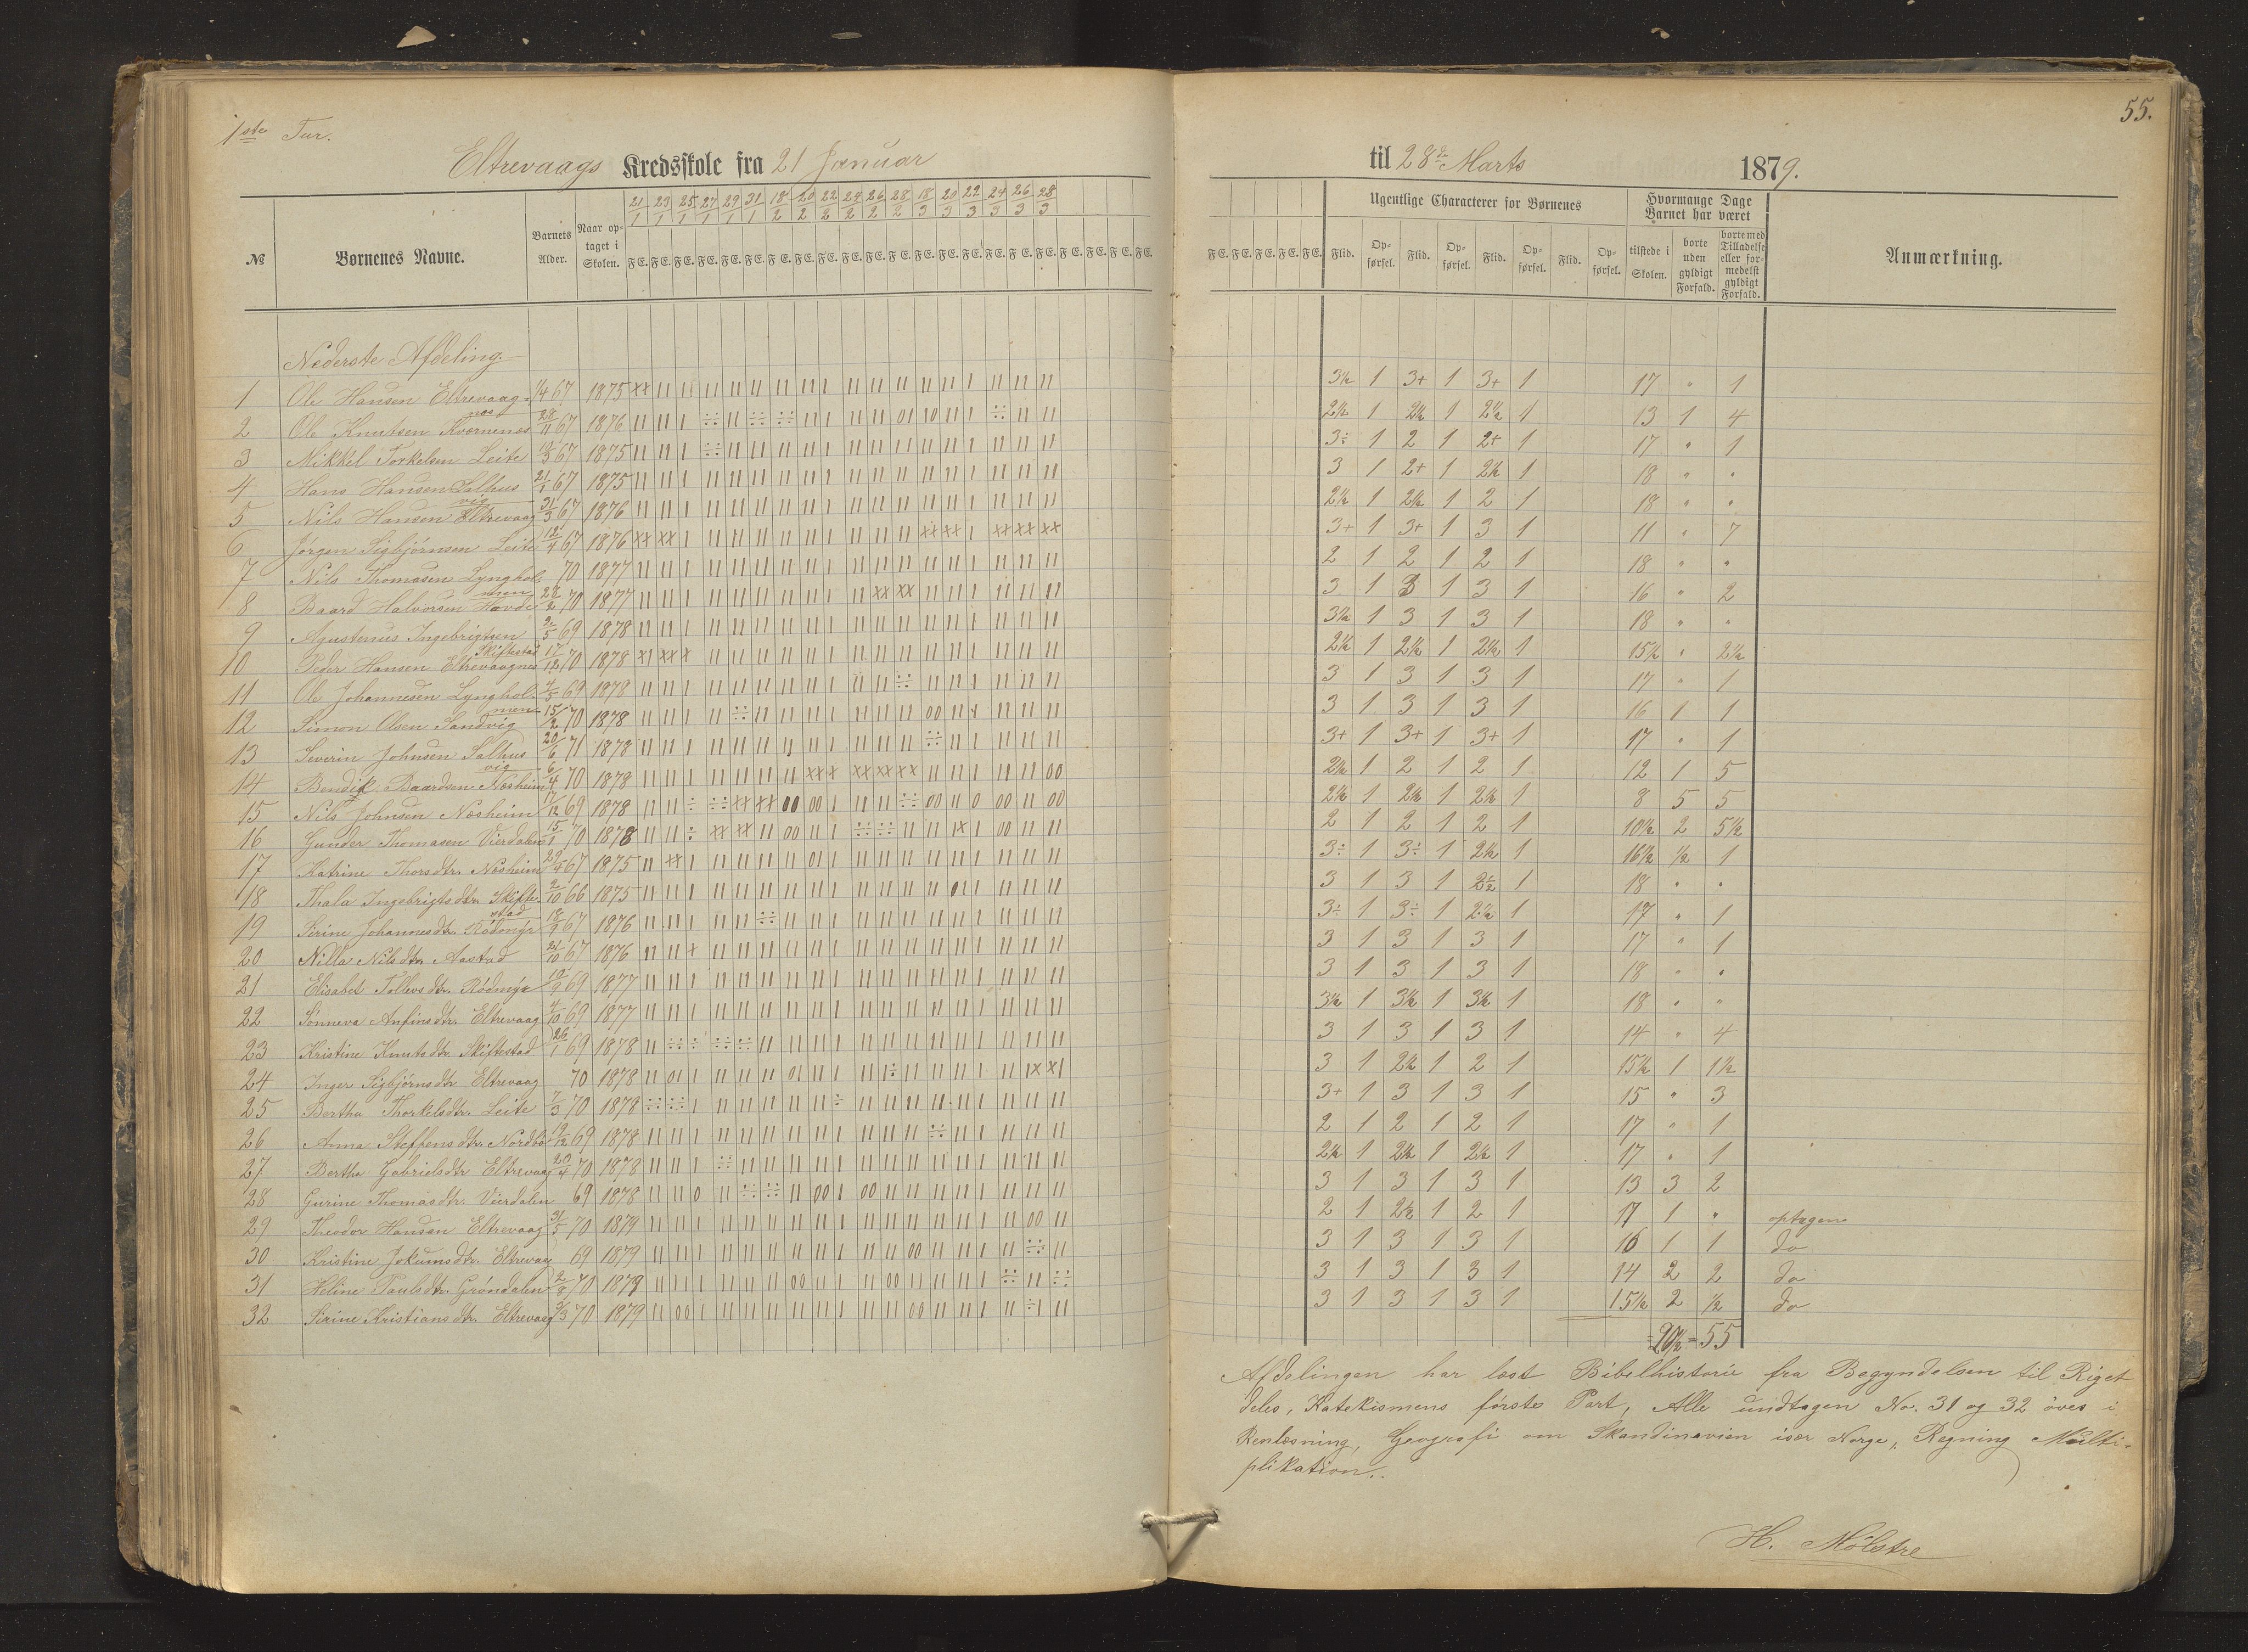 55.
1ste Tur.
Eltrevaags Kredsskole fra 21 Januar til 28de Marts 1879.
№ Børnenes Navne. Barnets Alder. Naar optaget i Skolen. F E. Ugentlige Characterer for Børnenes Flid. Opførsel. Flid. Opførsel. Flid. Opførsel. Flid. Opførsel. Hvormange Dage Barnet har været tilstede i Skolen. borte uden gyldigt Forfald. borte med Tilladelse eller formedelst gyldigt Forfald. Anmærkning.
21/1 23/1 25/1 27/1 29/1 31/1 18/2 20/2 22/2 24/2 26/2 28/2 18/3 20/3 22/3 24/3 26/3 28/3
Nederste Afdeling.
1 Ole Hansen Eltrevaag- 1/4 67 1875 3½ 1 3+ 1 3+ 1 17 " 1
2 Ole Knutsen Kvernenes 28/11 67 1876 2½ 1 2½ 1 2½ 1 13 1 4
3 Mikkel Torkelsen Leite 67 1875 3÷ 1 2 1 2+ 1 17 " 1
4 Hans Hansen Salhusvig 21/1 67 1875 3 1 2+ 1 2½ 1 18 " "
5 Nils Hansen Eltrevaag 31/3 67 1876 2½ 1 2½ 1 2 1 18 " "
6 Jørgen Sigbjørnsen Leite 12/4 67 1876 3+ 1 3+ 1 3 1 11 " 7
7 Nils Thomasen Lyngholmen 70 1877 2 1 2 1 2 1 18 " "
8 Baard Halvorsen Hovde 28/2 70 1877 3 1 3 1 3 1 16 " 2
9 Agustenus Ingebrigtsen Skiftestad 2/5 69 1878 3½ 1 3 1 3 1 18 " "
10 Peder Hansen Eltrevaagnes 17/12 70 1878 2½ 1 2½ 1 2½ 1 15½ " 2½
11 Ole Johannesen Lyngholmen 4/5 69 1878 3 1 3 1 3 1 17 " 1
12 Simon Olsen Sandvig 15/2 70 1878 3 1 3 1 3 1 16 1 1
13 Severin Johnsen Salhusvig 20/6 71 1878 3+ 1 3+ 1 3+ 1 17 " 1
14 Bendik Baardsen Næsheim 6/4 70 1878 2½ 1 2 1 2 1 12 1 5
15 Nils Johnsen Næsheim 17/12 69 1878 2½ 1 2½ 1 2½ 1 8 5 5
16 Gunder Thomasen Vierdalen 15/1 70 1878 2 1 2 1 2 1 10½ 2 5½
17 Katrine Thorsdtr. Næsheim 67 1875 3÷ 1 3÷ 1 2½ 1 16½ ½ 1
18 Thala Ingebrigtsdtr. Skiftestad 2/10 66 1875 3 1 3 1 2½ 1 18 " "
19 Serine Johannesdtr. Rødmyr 67 1876 3÷ 1 3÷ 1 2½ 1 17 " 1
20 Nilla Nilsdtr. Aastad 21/10 67 1876 3 1 3 1 3 1 17 " 1
21 Elisabet Tollevsdtr. Rødmyr 69 1877 3 1 3 1 3 1 18 " "
22 Sønneva Anfinsdtr. Eltrevaag 4/10 69 1877 3½ 1 3½ 1 3½ 1 18 " "
23 Kristine Knutsdtr Skiftestad 26/1 69 1878 3 1 3 1 3 1 14 " 4
24 Inger Sigbjørnsdtr Eltrevaag 70 1878 3 1 2½ 1 2 1 15½ 1 1½
25 Bertha Thorkelsdtr. Leite 7/3 70 1878 3+ 1 3 1 3 1 15 " 3
26 Anna Steffensdtr. Nordbø 19/12 69 1878 2 1 2 1 2 1 17 " 1
27 Bertha Gabrielsdtr Eltrevaag 20/4 70 1878 2½ 1 2½ 1 2½ 1 17 " 1
28 Gurine Thomasdtr. Vierdalen 69 1878 3 1 3 1 3 1 13 3 2
29 Theodor Hansen Eltrevaag 31/5 70 1879 2 1 2½ 1 2 1 17 1 " optagen
30 Kristine Jokumsdtr. Eltrevag 69 1879 3 1 3 1 3 1 16 1 1 do
31 Heline Paulsdtr. Grøndalen 70 1879 3 1 3 1 3 1 14 2 2 do
32 Kristiansdtr. Eltrevaag 70 1879 3 1 3 1 3 1 15½ 2 ½ do
=20½=55
Afdelingen har læst Bibelhistorie fra Begyndelsen til Riget
deles, Katekismens første Part, Alle undtagen No. 31 og 32 øves i
Renlæsning, Geografi om Skandinavien især Norge, Regning Multi-
plikation.
H. Mølstre